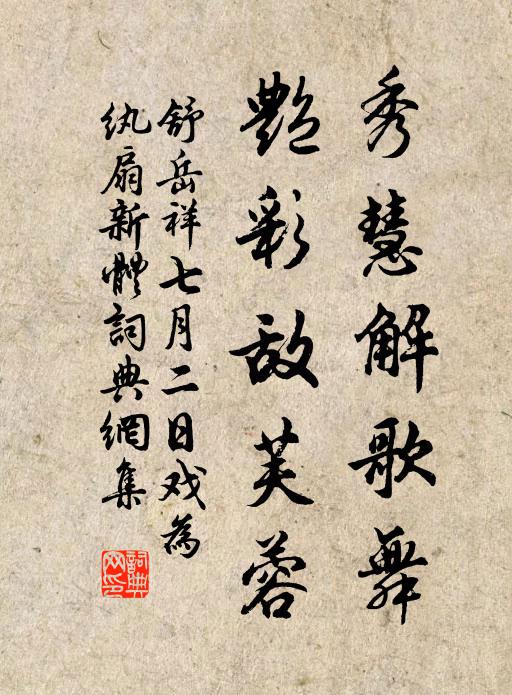 秀慧解歌舞
艳彩敌芙蓉
舒岳祥七月二日戏為
纨扇新體詞典網集
詞典
网印